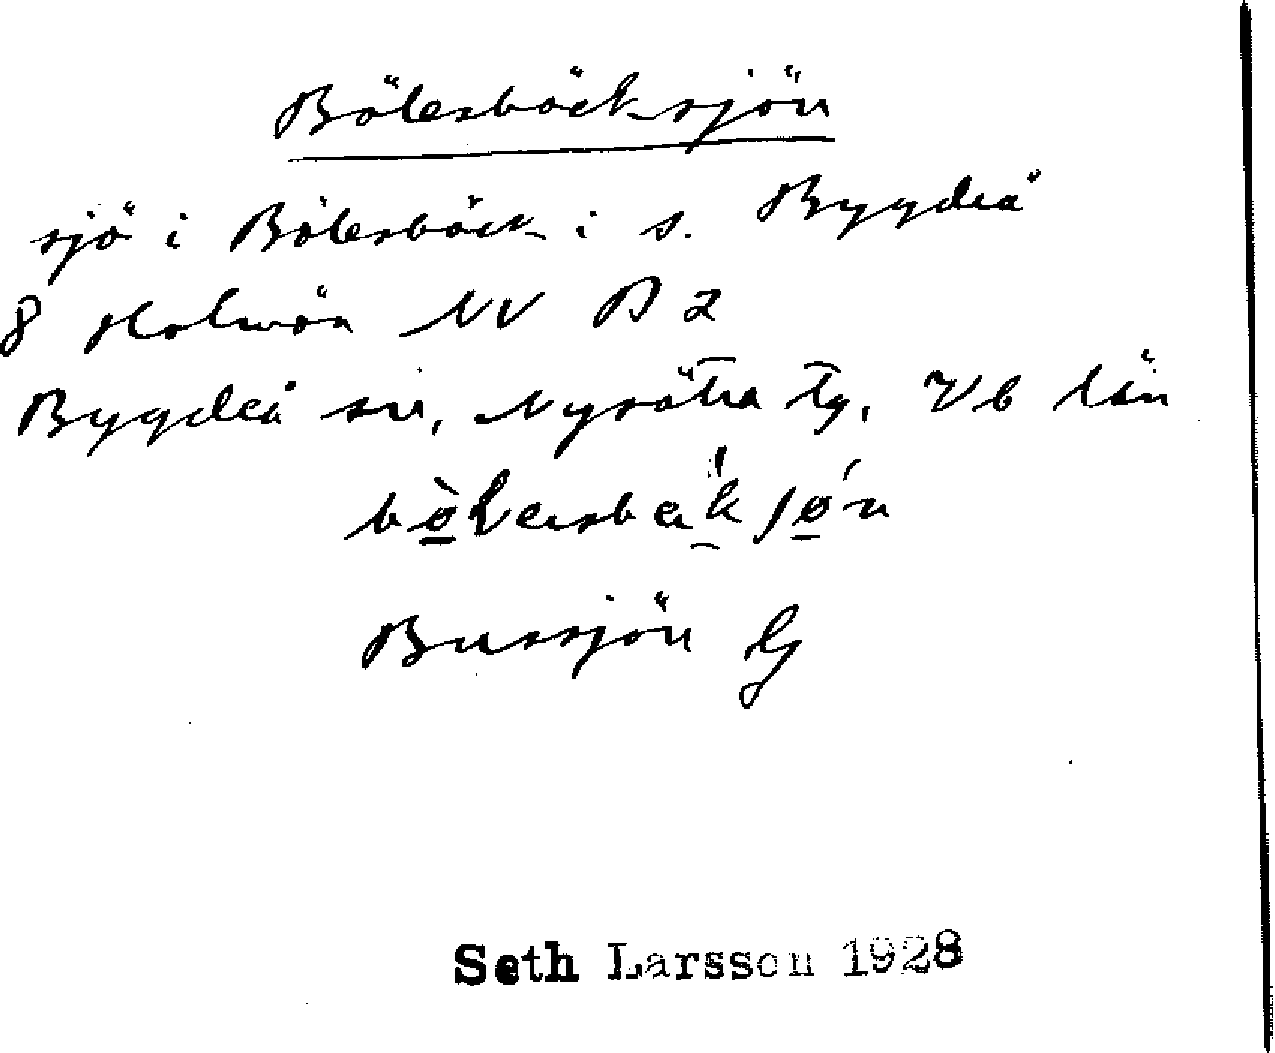 Bölesbäcksjön
sjö i Bölesbäck i s. Bygdeå
8 Holmön NV B 2
Bygdeå sn, Nysätra tg, Vb län
Bussjön G
Seth Larsson 1928